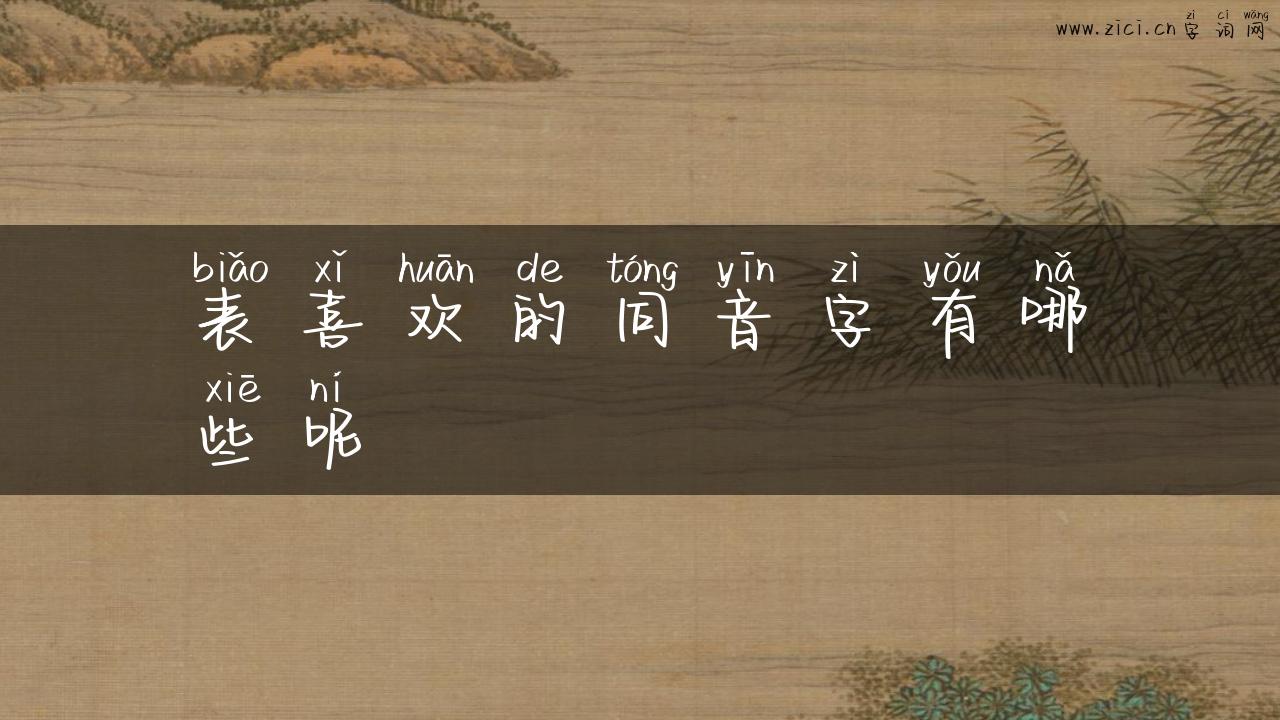 zì cí wǎng
www.zici.cn 字 词 网
biǎo xǐ huān de tóng yīn zì yǒu nǎ
表 喜 欢 的 同 音 字 有 哪
xiē ní
些 呢